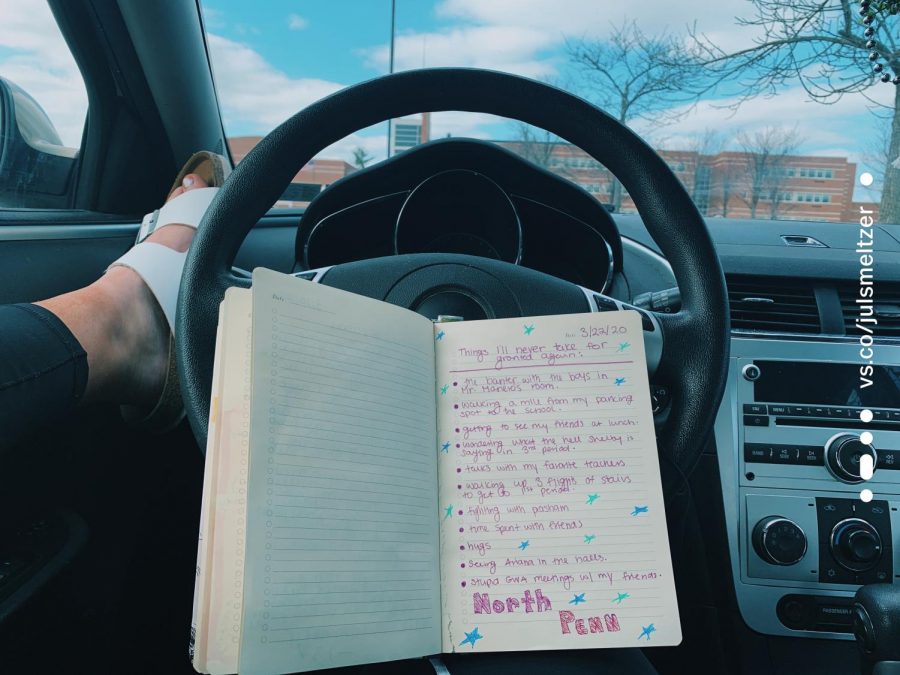 3/27/20
Things I'll never take for
granted again:
the banter with the boys in
Mr. Manero's room.
walking a mile from my parking
spot to the school.
getting to see my friends at lunch.
wondering what the hell Shelby is
saying in 3rd period.
talks with my favorite teachers
walking up 3 flights of stairs
to get to 1st period
fighting with
time spent with friends
hugs
seeing Ariana in the halls.
stupid GWA meetings w/ my friends.
North
Penn
vs.co/julsmeltzer